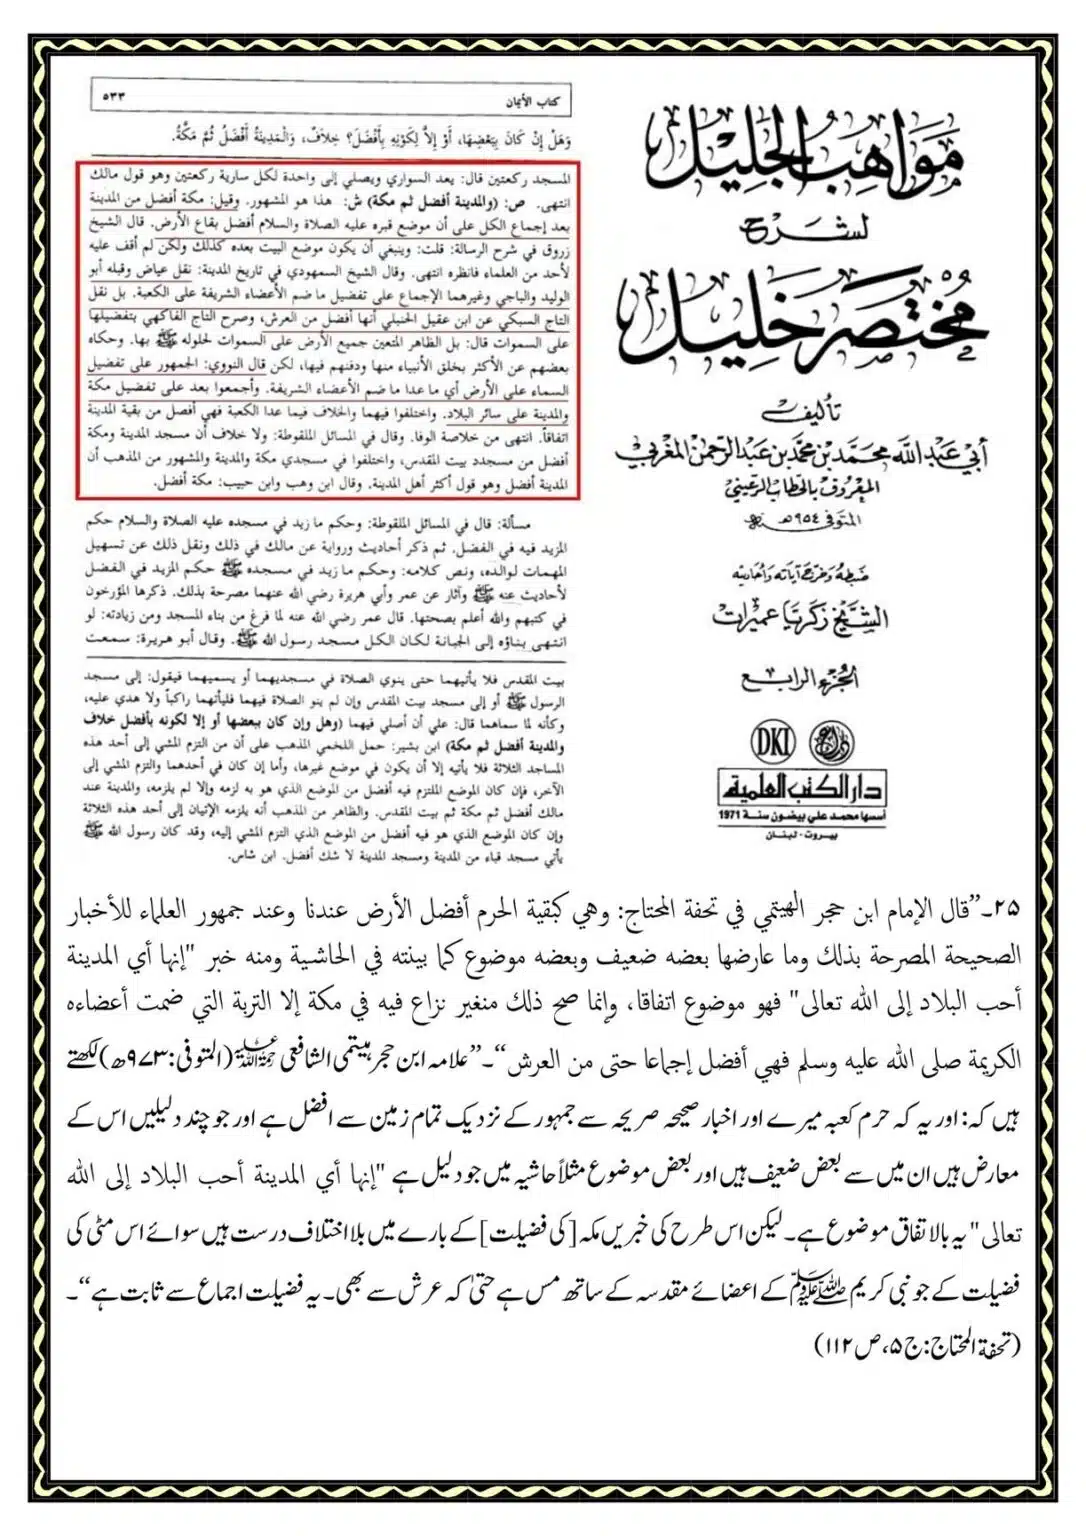 كتاب الأيمان ٥٣٣
وَهَلْ إِنْ كَانَ بِبَعْضِهَا، أَوْ إِلَّا لِكَوْنِهِ بِأَفْضَلَ؟ خِلَافٌ، وَالْمَدِينَةُ أَفْضَلُ ثُمَّ مَكَّةُ.
المسجد ركعتين قال: يعد السواري ويصلي إلى واحدة لكل سارية ركعتين وهو قول مالك
انتهى. ص: (والمدينة أفضل ثم مكة) ش: هذا هو المشهور. وقيل: مكة أفضل من المدينة
بعد إجماع الكل على أن موضع قبره عليه الصلاة والسلام أفضل بقاع الأرض. قال الشيخ
زروق في شرح الرسالة: قلت: وينبغي أن يكون موضع البيت بعده كذلك ولكن لم أقف عليه
لأحد من العلماء فانظره انتهى. وقال الشيخ السمهودي في تاريخ المدينة: نقل عياض وقبله أبو
الوليد والباجي وغيرهما الإجماع على تفضيل ما ضم الأعضاء الشريفة على الكعبة. بل نقل
التاج السبكي عن ابن عقيل الحنبلي أنها أفضل من العرش، وصرح التاج الفاكهي بتفضيلها
على السموات قال: بل الظاهر المتعين جميع الأرض على السموات لحلوله ﷺ بها. وحكاه
بعضهم عن الأكثر بخلق الأنبياء منها ودفنهم فيها، لكن قال النووي: الجمهور على تفضيل
السماء على الأرض أي ما عدا ما ضم الأعضاء الشريفة. وأجمعوا بعد على تفضيل مكة
والمدينة على سائر البلاد. واختلفوا فيهما والخلاف فيما عدا الكعبة فهي أفضل من بقية المدينة
اتفاقاً. انتهى من خلاصة الوفا. وقال في المسائل الملقوطة: ولا خلاف أن مسجد المدينة ومكة
أفضل من مسجدد بيت المقدس، واختلفوا في مسجدي مكة والمدينة والمشهور من المذهب أن
المدينة أفضل وهو قول أكثر أهل المدينة. وقال ابن وهب وابن حبيب: مكة أفضل.
مسألة: قال في المسائل الملقوطة: وحكم ما زيد في مسجده عليه الصلاة والسلام حكم
المزيد فيه في الفضل. ثم ذكر أحاديث ورواية عن مالك في ذلك ونقل ذلك عن تسهيل
المهمات لوالده، ونص كلامه: وحكم ما زيد في مسجده ﷺ حكم المزيد في الفضل
لأحاديث عنه ﷺ وآثار عن عمر وأبي هريرة رضي الله عنهما مصرحة بذلك. ذكرها المؤرخون
في كتبهم والله أعلم بصحتها. قال عمر رضي الله عنه لما فرغ من بناء المسجد ومن زيادته: لو
انتهى بناؤه إلى الجبانة لكان الكل مسجد رسول الله ﷺ. وقال أبو هريرة: سمعت
بيت المقدس فلا يأتيهما حتى ينوي الصلاة في مسجديهما أو يسميهما فيقول: إلى مسجد
الرسول ﷺ أو إلى مسجد بيت المقدس وإن لم ينو الصلاة فيهما فليأتهما راكباً ولا هدي عليه،
وكأنه لما سماهما قال: علي أن أصلي فيهما (وهل وإن كان ببعضها أو إلا لكونه بأفضل خلاف
والمدينة أفضل ثم مكة) ابن بشير: حمل اللخمي المذهب على أن من التزم المشي إلى أحد هذه
المساجد الثلاثة فلا يأتيه إلا أن يكون في موضع غيرها، وأما إن كان في أحدهما والتزم المشي إلى
الآخر، فإن كان الموضع الملتزم فيه أفضل من الموضع الذي هو به لزمه وإلا لم يلزمه، والمدينة عند
مالك أفضل ثم مكة ثم بيت المقدس. والظاهر من المذهب أنه يلزمه الإتيان إلى أحد هذه الثلاثة
وإن كان الموضع الذي هو فيه أفضل من الموضع الذي التزم المشي إليه، وقد كان رسول الله ﷺ
يأتي مسجد قباء من المدينة ومسجد المدينة لا شك أفضل. ابن شاس.
مَوَاهِبُ الجَلِيل
لشرح
مُخْتَصَر خَلِيل
تأليف
أبي عبد الله محمد بن محمد بن عبد الرحمن المغربي
المعروف بالحطاب الرعيني
المتوفى ٩٥٤ هـ
ضبطه وخرج آياته وأحاديثه
الشيخ زكريا عميرات
الجزء الرابع
DKI
دار الكتب العلمية
أسسها محمد علي بيضون سنة 1971
بيروت - لبنان
۲۵۔”قال الإمام ابن حجر الهيتمي في تحفة المحتاج: وهي كبقية الحرم أفضل الأرض عندنا وعند جمهور العلماء للأخبار
الصحيحة المصرحة بذلك وما عارضها بعضه ضعيف وبعضه موضوع كما بينته في الحاشية ومنه خبر "إنها أي المدينة
أحب البلاد إلى الله تعالى" فهو موضوع اتفاقا، وإنما صح ذلك منغير نزاع فيه في مكة إلا التربة التي ضمت أعضاءه
الكريمة صلى الله عليه وسلم فهي أفضل إجماعا حتى من العرش“۔”علامہ ابن حجر ہیتمی الشافعی رحمۃ اللہ علیہ (المتوفی:۹۷۳ھ) لکھتے
ہیں کہ: اور یہ کہ حرم کعبہ میرے اور اخبار صحیحہ صریحہ سے جمہور کے نزدیک تمام زمین سے افضل ہے اور جو چند دلیلیں اس کے
معارض ہیں ان میں سے بعض ضعیف ہیں اور بعض موضوع مثلاً حاشیہ میں جو دلیل ہے "إنها أي المدينة أحب البلاد إلى الله
تعالى" یہ بالاتفاق موضوع ہے۔ لیکن اس طرح کی خبریں مکہ [کی فضیلت] کے بارے میں بلا اختلاف درست ہیں سوائے اس مٹی کی
فضیلت کے جو نبی کریم ﷺ کے اعضائے مقدسہ کے ساتھ مس ہے حتیٰ کہ عرش سے بھی۔ یہ فضیلت اجماع سے ثابت ہے“۔
(تحفۃ المحتاج: ج۵، ص۱۱۲)